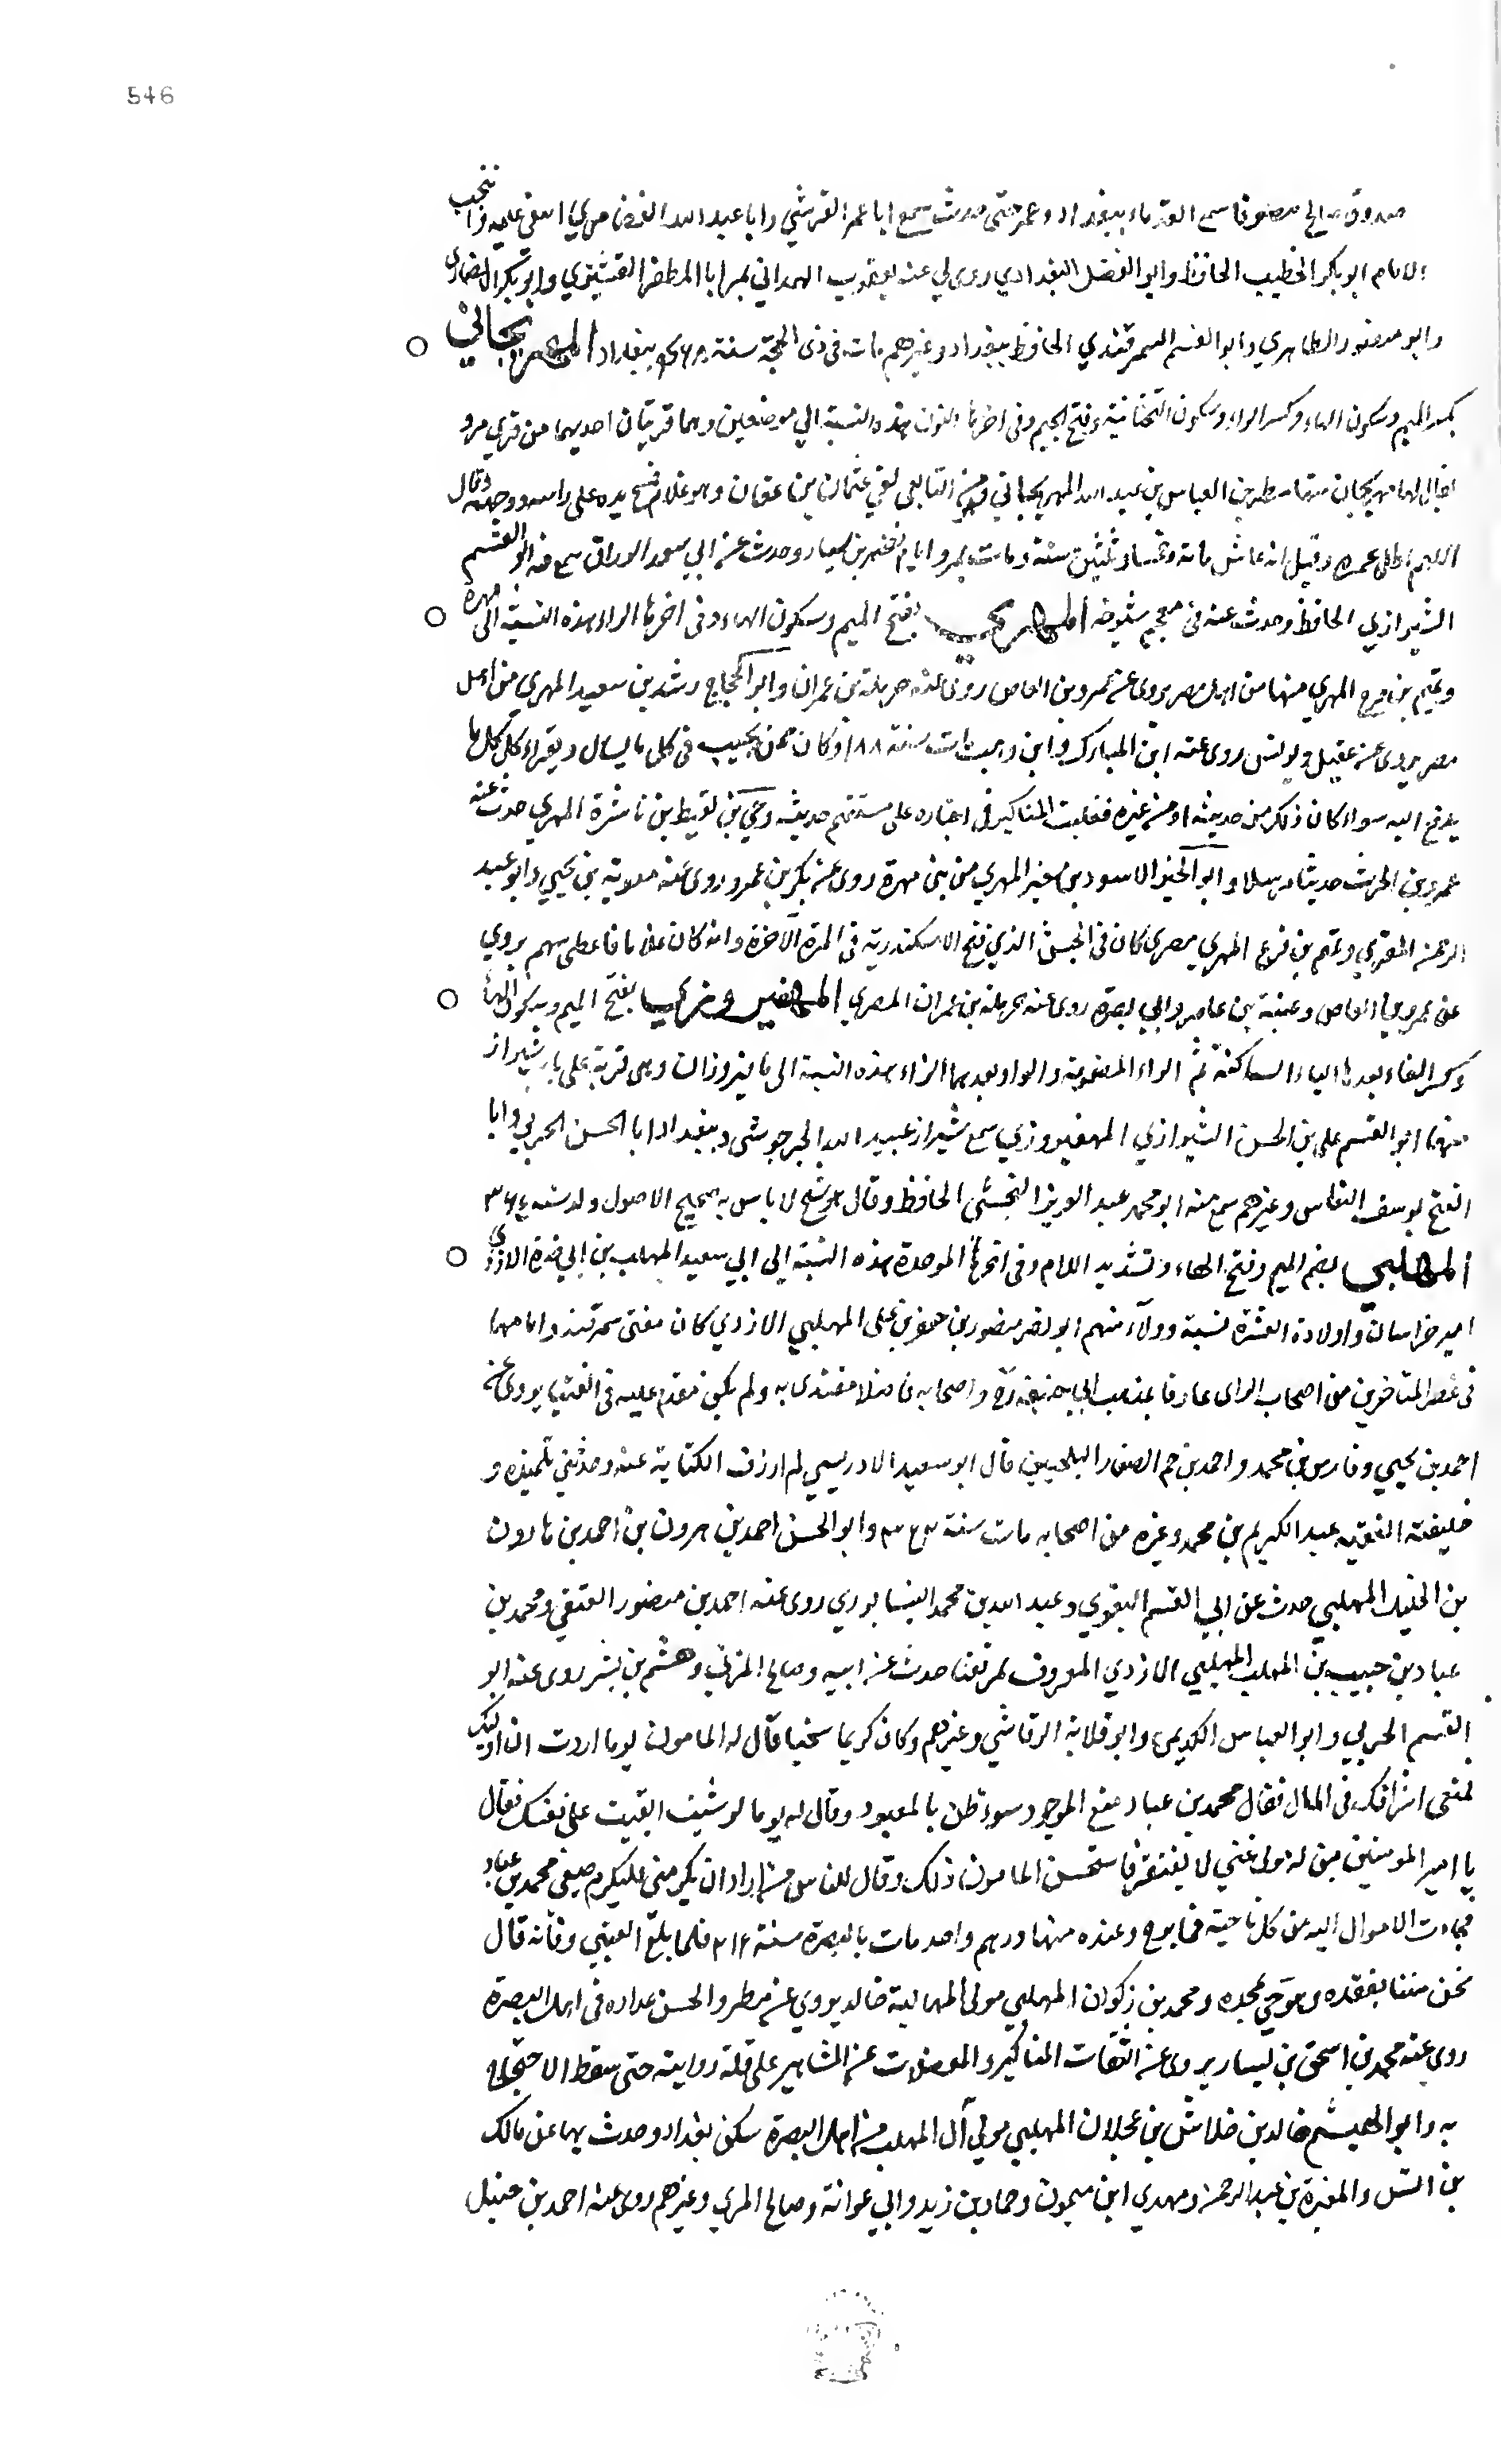 546
صدوق صالح متصوفا سمع القدماء ببغداد وعمر حتى حدث سمع ابا عمر القرشي وابا عبد الله القضاعي انتقى عليه وانتخب
الامام ابو بكر الخطيب الحافظ وابو الفضل البغدادي روى لي عنه يعقوب الهمداني بمرو ابا المظفر القشيري وابو بكر الانصاري
وابو منصور الطاهري وابو القسم السمرقندي الحافظ ببغداد وغيرهم مات في ذي الحجة سنة ببغداد المهريجاني
بكسر الميم وسكون الهاء وكسر الراء وسكون التحتانية وفتح الجيم وفي اخرها النون هذه النسبة الي موضعين وهما قريتان احديهما من قري مرو
يقال لها مهريجان منها مطر بن العباس بن عبد الله المهريجاني من التابعي لقي عثمان بن عفان وهو غلام فمسح يده على راسه ووجهه وقال
اللهم اطل عمره وقيل انه عاش مائة وخمسا وثلثين سنة ومات بمرو ايام نصر بن سيار وحدث عن ابي سعد الوراق سمع منه ابو القسم
الشيرازي الحافظ وحدث عنه في معجم شيوخه المهري بفتح الميم وسكون الهاء وفي اخرها الراء هذه النسبة الى مهرة
وتميم بن فرع المهري منها من اهل مصر يروى عن عمرو بن العاص روى عنه حرملة بن عمران وابو الحجاج رشد بن سعيد المهري من اهل
مصر يروى عن عقيل ويونس روى عنه ابن المبارك وابن وهب مات سنة ١٨٨ وكان ممن يجيب في كل ما يسال ويقراء كل كل ما
يدفع اليه سواء كان ذلك من حديثه او من غيره فغلبت المناكير في اخباره على مستقيم حديثه ومي بن لقيط بن ناشرة المهري حدث عنه
عمرو بن الحرث حديثا مرسلا وابو الخير الاسود بن خير المهري من بني مهرة روى عن بكر بن عمرو روى عنه معاوية بن يحيي وابو عبد
الرحمن المقري وتميم بن فرع المهري مصرى كان في الجيش الذي فتح الاسكندرية في المرة الآخرة وانه كان غلاما فاعطى سهم يروي
عن عمرو بن العاص وعقبة بن عامر وابي بصرة روى عنه حرملة بن عمران المصري المهفيروزي بفتح الميم وسكون الهاء
وكسر الفاء بعدها الياء الساكنة ثم الراء المضمومة والواو بعدها الزاء هذه النسبة الى ما فيروزان وهي قرية على باب شيراز
منها ابو القسم على بن الحسن الشيرازي المهفيروزي سمع بشيراز عبيد الله الجرجوشى وببغداد ابا الحسن الحربي وابا
الفتح يوسف القواس وغيرهم سمع منه ابو محمد عبد العزيز النخشبي الحافظ وقال هو شيخ لا باس به صحيح الاصول ولد سنة ٣٦٤
المهلبي بضم الميم وفتح الهاء وتشديد اللام وفي اخرها الموحدة هذه النسبة إلى ابي سعيد المهلب بن ابي صفرة الازدي
امير خراسان واولاده العشرة نسبة وولآء منهم ابو نصر منصور بن جعفر بن على المهلبي الازدي كان مفتى سمرقند وامامها
في عصر المتاخرين من اصحاب الراى عارفا بمذهب ابي حنيفة رح واصحابه فاضلا مقتدى به ولم يكن مقدم عليه في الفتيا يروى عن
احمد بن يحيي وفارس بن محمد واحمد بن حم الصفار البلخيين قال ابو سعيد الادريسي لم ارزق الكتابة عنه وحدثني تلميذه و
خليفته الفقيه عبد الكريم بن محمد وغيره من اصحابه مات سنة وابو الحسن احمد بن هرون بن احمد بن هارون
بن الخليل المهلبي حدث عن ابي القسم البغوي وعبد الله بن محمد النيسابوري روى عنه احمد بن منصور العتيقي ومحمد بن
عباد بن حبيب بن المهلب المهلبي الازدي المعروف حدث عن ابيه وصالح المري وهشيم بن بشير روى عنه ابو
القسم الحربي وابو العباس الكديمى وابو قلابة الرقاشي وغيرهم وكان كريما سخيا قال له المامون يوما اردت ان اوليك
لمنعى اسرافك في المال فقال محمد بن عباد منع الموجود سوء ظن بالمعبود وقال له يوما لو شيت ابقيت على نفسك فقال
يا امير المومنين من له مولى غني لا يفتقر فاستحسن المامون ذلك وقال للناس من اراد ان يكرمني فليكرم ضيفى محمد بن عباد
فجاءت الاموال اليه من كل ناحية فما برح وعنده منها درهم واحد مات بالبصرة سنة ٢١٦ فلما بلغ العتبي وفاته قال
نحن متنا بفقده وهو حي بمجده ومحمد بن ذكوان المهلبي مولى المهالبة خال يروي عن مطر والحسن عداده في اهل البصرة
روى عنه محمد بن اسحق بن يسار يروى عن الثقات المناكير والمعضلات عن المشاهير على قلة روايته حتى سقط الاحتجاج
به وابو الهيثم خالد بن خداش بن عجلان المهلبي مولي آل المهلب من اهل البصرة سكن بغداد وحدث بها عن مالك
بن انس والمغيرة بن عبد الرحمن ومهدي ابن ميمون وحماد بن زيد وابي عوانة وصالح المري وغيرهم روى عنه احمد بن حنبل